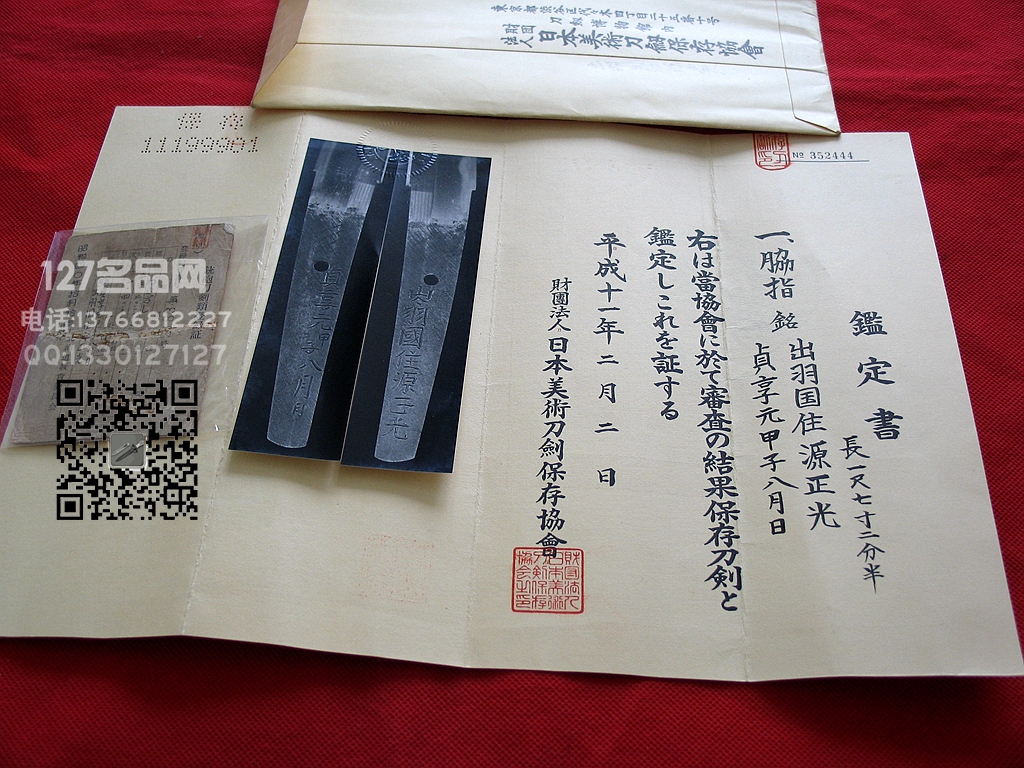 東京都渋谷区代々木四丁目二十五番十号
刀剣博物館内
財団法人 日本美術刀剣保存協會
11199981
№ 352444
鑑定書
長一尺七寸二分半
一、脇指 銘 出羽国住源正光
貞享元甲子八月日
右は當協會に於て審査の結果保存刀剣と
鑑定しこれを証する
平成十一年二月二日
財團法人日本美術刀劍保存協會
出羽國住源正光
貞享元甲子八月日
127名品网
电话:13766812227
QQ:1330127127